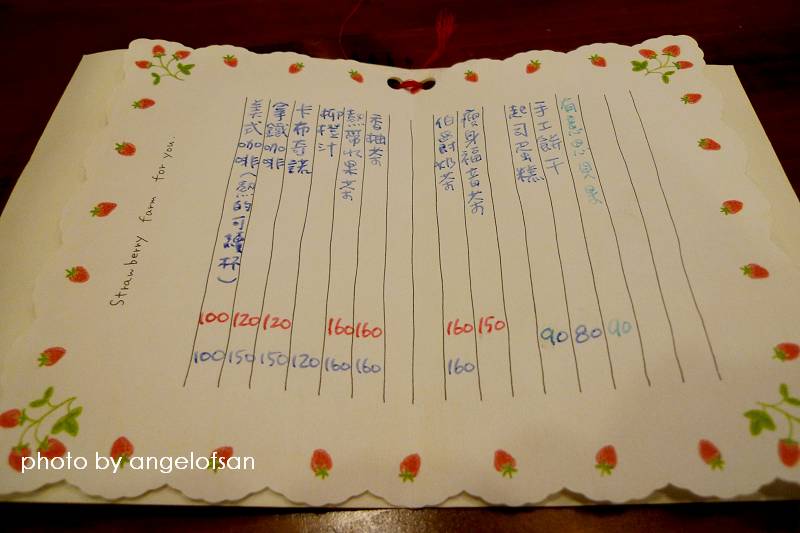 Strawberry farm for you.
美式咖啡(熱的可續杯) 100 100
拿鐵咖啡 120 150
卡布奇諾 120 150
柳橙汁 120
熱帶水果茶 160 160
香柚茶 160 160
伯爵奶茶 160 160
瘦身福音茶 150
起司蛋糕 90
手工餅干 80
90
photo by angelofsan